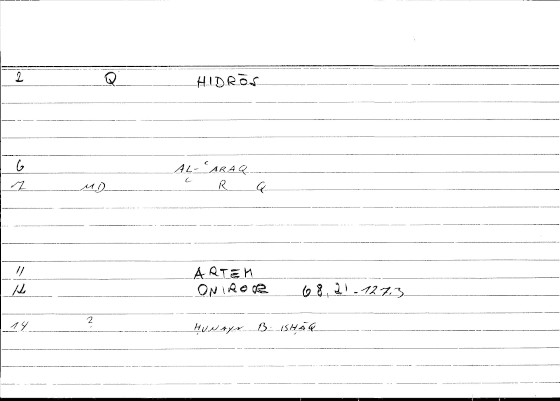 2 Q HIDRŌS
6 AL-ʿARAQ
7 MD ʿ R Q
11 ARTEM
12 ONIROCR 68,21-127.3
14 ? ḤUNAYN B ISḤĀQ